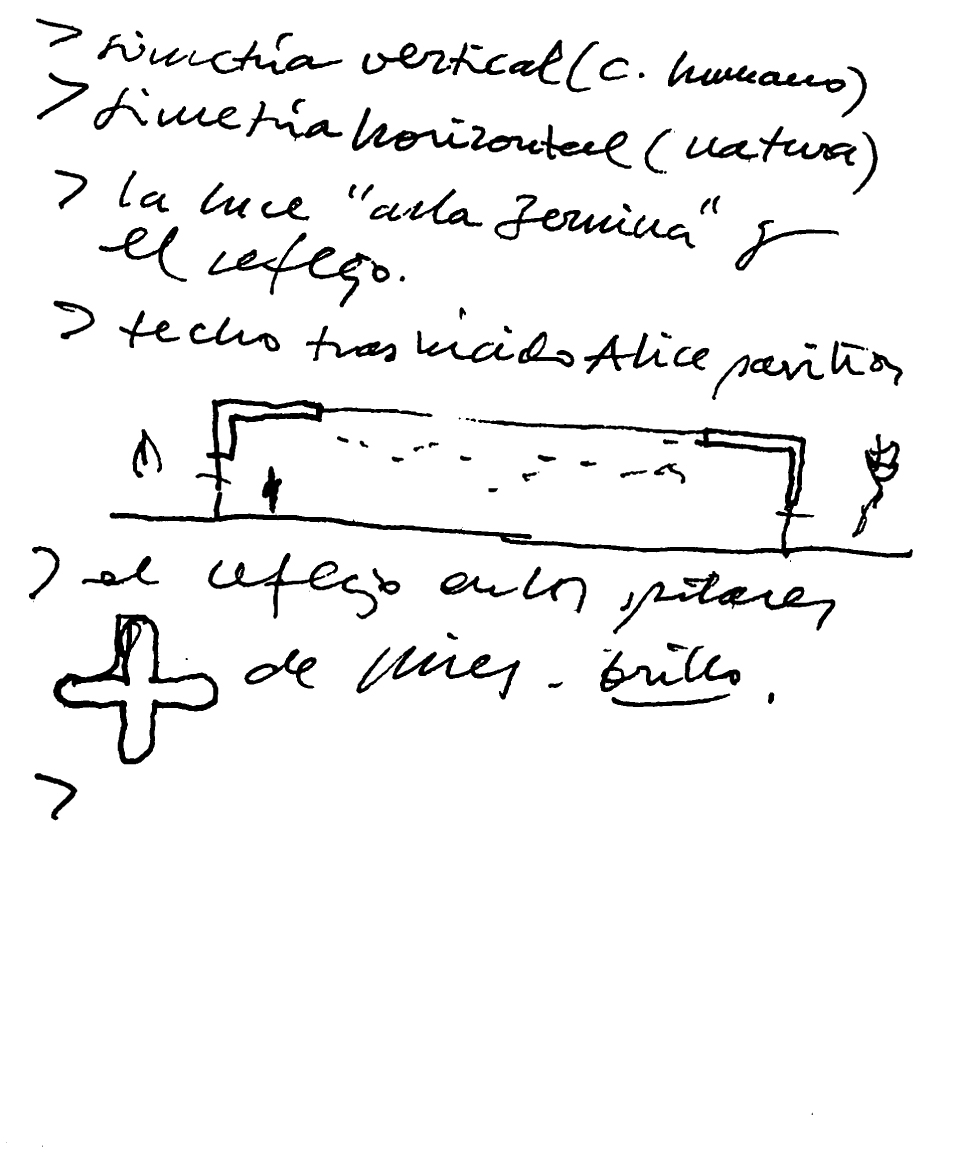 > simetría vertical (c. humano)
> simetría horizontal (natura)
> la luce "ala Zemina" y
el reflejo.
> techo traslucido Alice pavition
> el reflejo en los pilares
de Mies - brillo.
>